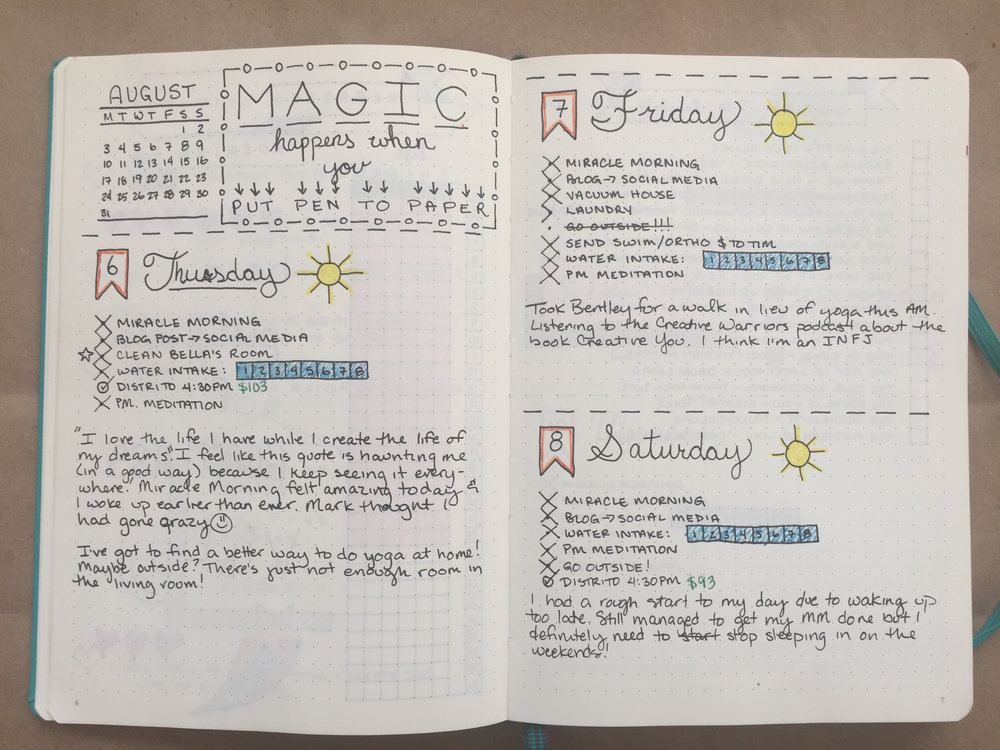 AUGUST
M T W T F S S
1 2
3 4 5 6 7 8 9
10 11 12 13 14 15 16
17 18 19 20 21 22 23
24 25 26 27 28 29 30
31
MAGIC
happens when
you
PUT PEN TO PAPER
6 Thursday
MIRACLE MORNING
BLOG POST → SOCIAL MEDIA
CLEAN BELLA'S ROOM
WATER INTAKE: 1 2 3 4 5 6 7 8
DISTRITO 4:30PM $103
PM. MEDITATION
"I love the life I have while I create the life of
my dreams." I feel like this quote is haunting me
(in a good way) because I keep seeing it every-
where. Miracle Morning felt amazing today &
I woke up earlier than ever. Mark thought I
had gone crazy
I've got to find a better way to do yoga at home!
Maybe outside? There's just not enough room in
the living room!
6
7 Friday
MIRACLE MORNING
BLOG → SOCIAL MEDIA
VACUUM HOUSE
LAUNDRY
GO OUTSIDE!!!
SEND SWIM/ORTHO $ TO TIM
WATER INTAKE: 1 2 3 4 5 6 7 8
PM MEDITATION
Took Bentley for a walk in lieu of yoga this AM.
Listening to the Creative Warriors podcast about the
book Creative You. I think I'm an INFJ
8 Saturday
MIRACLE MORNING
BLOG → SOCIAL MEDIA
WATER INTAKE: 1 2 3 4 5 6 7 8
PM MEDITATION
GO OUTSIDE!
DISTRITO 4:30PM $93
I had a rough start to my day due to waking up
too late. Still managed to get my MM done but I
definitely need to start stop sleeping in on the
weekends!
7